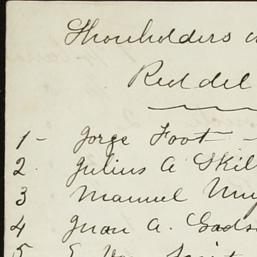 Shouholders
Reddel
1 - Jorge Foot -
2. Julius A Skil
3 Manuel Mu
4 Juan A. Gads
5